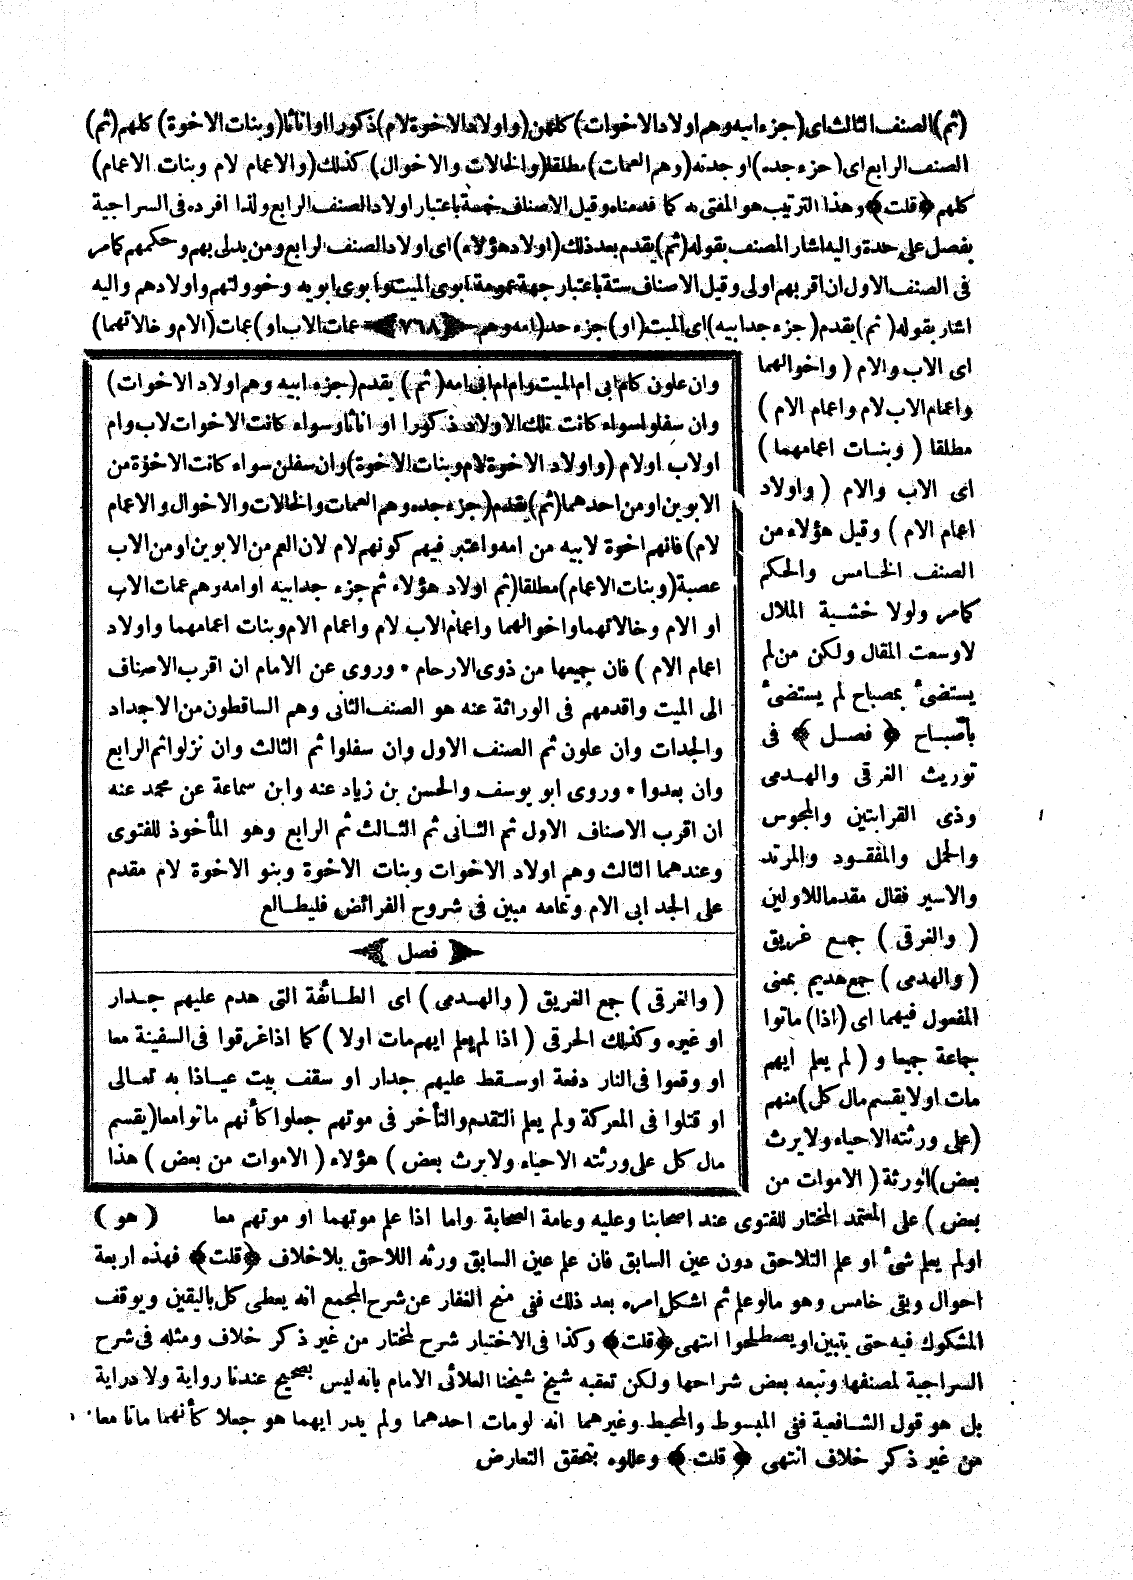 (ثم) الصنف الثالث اى (جزء ابيه وهم اولاد الاخوات) كلهن (واولاد الاخوة لام) ذكورا او اناثا (وبنات الاخوة) كلهم (ثم)
الصنف الرابع اى (جزء جده) او جدته (وهم العمات) مطلقا (والخالات والاخوال) كذلك (والاعمام لام وبنات الاعمام)
كلهم ﴿قلت﴾ وهذا الترتيب هو المفتى به كما قدمناه وقيل الاصناف خمسة باعتبار اولاد الصنف الرابع ولذا افرده فى السراجية
بفصل على حدة واليه اشار المصنف بقوله (ثم) يقدم بعد ذلك (اولاد هؤلاء) اى اولاد الصنف الرابع ومن يدلى بهم وحكمهم كما مر
فى الصنف الاول ان اقربهم اولى وقيل الاصناف ستة باعتبار جهة عمومة ابوى الميت وابوى ابويه وخوولتهم واولادهم واليه
اشار بقوله (ثم) يقدم (جزء جد ابيه) اى الميت (او) جزء جد (امه وهم ﴿٧٦٨﴾ عمات الاب او) عمات (الام وخالاتهما)
اى الاب والام (واخوالهما
واعمام الاب لام واعمام الام)
مطلقا (وبنات اعمامهما)
اى الاب والام (واولاد
اعمام الام) وقيل هؤلاء من
الصنف الخامس والحكم
كما مر ولولا خشية الملال
لاوسعت المقال ولكن من لم
يستضىء بمصباح لم يستضىء
بأصباح ﴿فصل﴾ فى
توريث الغرقى والهدمى
وذى القرابتين والمجوس
والحمل والمفقود والمرتد
والاسير فقال مقدما للاولين
(والغرقى) جمع غريق
(والهدمى) جمع هديم بمعنى
المفعول فيهما اى (اذا) ماتوا
جماعة جميعا و (لم يعلم ايهم
مات اولا يقسم مال كل) منهم
(على ورثته الاحياء ولا يرث
بعض) الورثة (الاموات من
بعض) على المعتمد المختار للفتوى عند اصحابنا وعليه وعامة الصحابة واما اذا علم موتهما او موتهم معا (هو)
اولم يعلم شىء او علم التلاحق دون عين السابق فان علم عين السابق ورثه اللاحق بلا خلاف ﴿قلت﴾ فهذه اربعة
احوال وبقى خامس وهو مالو علم ثم اشكل امره بعد ذلك ففى منح الغفار عن شرح المجمع انه يعطى كل باليقين ويوقف
المشكوك فيه حتى يتبين او يصطلحوا انتهى ﴿قلت﴾ وكذا فى الاختيار شرح لمختار من غير ذكر خلاف ومثله فى شرح
السراجية لمصنفها وتبعه بعض شراحها ولكن تعقبه شيخ شيخنا العلائى الامام بانه ليس بصحيح عندنا رواية ولا دراية
بل هو قول الشافعية ففى المبسوط والمحيط وغيرهما انه لو مات احدهما ولم يدر ايهما هو جعلا كأنهما ماتا معا
من غير ذكر خلاف انتهى ﴿قلت﴾ وعللوه بتحقق التعارض
وان علون كام ابى ام الميت وام ام ابى امه (ثم) يقدم (جزء ابيه وهم اولاد الاخوات)
وان سفلوا سواء كانت تلك الاولاد ذكورا او اناثا وسواء كانت الاخوات لاب وام
او لاب او لام (واولاد الاخوة لام وبنات الاخوة) وان سفلن سواء كانت الاخوة من
الابوين او من احدهما (ثم) يقدم (جزء جده وهم العمات والخالات والاخوال والاعمام
لام) فانهم اخوة لابيه من امه واعتبر فيهم كونهم لام لان العم من الابوين او من الاب
عصبة (وبنات الاعمام) مطلقا (ثم اولاد هؤلاء ثم جزء جد ابيه او امه وهم عمات الاب
او الام وخالاتهما واخوالهما واعمام الاب لام واعمام الام وبنات اعمامهما واولاد
اعمام الام) فان جميعها من ذوى الارحام • وروى عن الامام ان اقرب الاصناف
الى الميت واقدمهم فى الوراثة عنه هو الصنف الثانى وهم الساقطون من الاجداد
والجدات وان علون ثم الصنف الاول وان سفلوا ثم الثالث وان نزلوا ثم الرابع
وان بعدوا • وروى ابو يوسف والحسن بن زياد عنه وابن سماعة عن محمد عنه
ان اقرب الاصناف الاول ثم الثانى ثم الثالث ثم الرابع وهو المأخوذ للفتوى
وعندهما الثالث وهم اولاد الاخوات وبنات الاخوة وبنو الاخوة لام مقدم
على الجد ابى الام وتمامه مبين فى شروح الفرائض فليطالع
﴿فصل﴾
(والغرقى) جمع الغريق (والهدمى) اى الطائفة التى هدم عليهم جدار
او غيره وكذلك الحرقى (اذا لم يعلم ايهم مات اولا) كما اذا غرقوا فى السفينة معا
او وقعوا فى النار دفعة او سقط عليهم جدار او سقف بيت عياذا به تعالى
او قتلوا فى المعركة ولم يعلم التقدم والتأخر فى موتهم جعلوا كأنهم ماتوا معا (يقسم
مال كل على ورثته الاحياء ولا يرث بعض) هؤلاء (الاموات من بعض) هذا